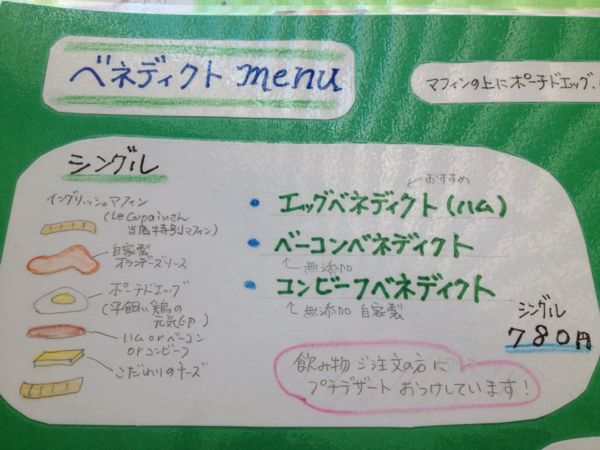 ベネディクト menu
マフィンの上にポーチドエッグ、
シングル
イングリッシュマフィン
(Le Coupainさん
当店特別マフィン)
自家製
オランデーズソース
ポーチドエッグ
(平飼い鶏の
元気卵)
ハムorベーコン
orコンビーフ
こだわりのチーズ
おすすめ
・エッグベネディクト(ハム)
・ベーコンベネディクト
無添加
・コンビーフベネディクト
無添加 自家製
シングル
780円
飲み物ご注文の方に
プチデザートおつけしています!